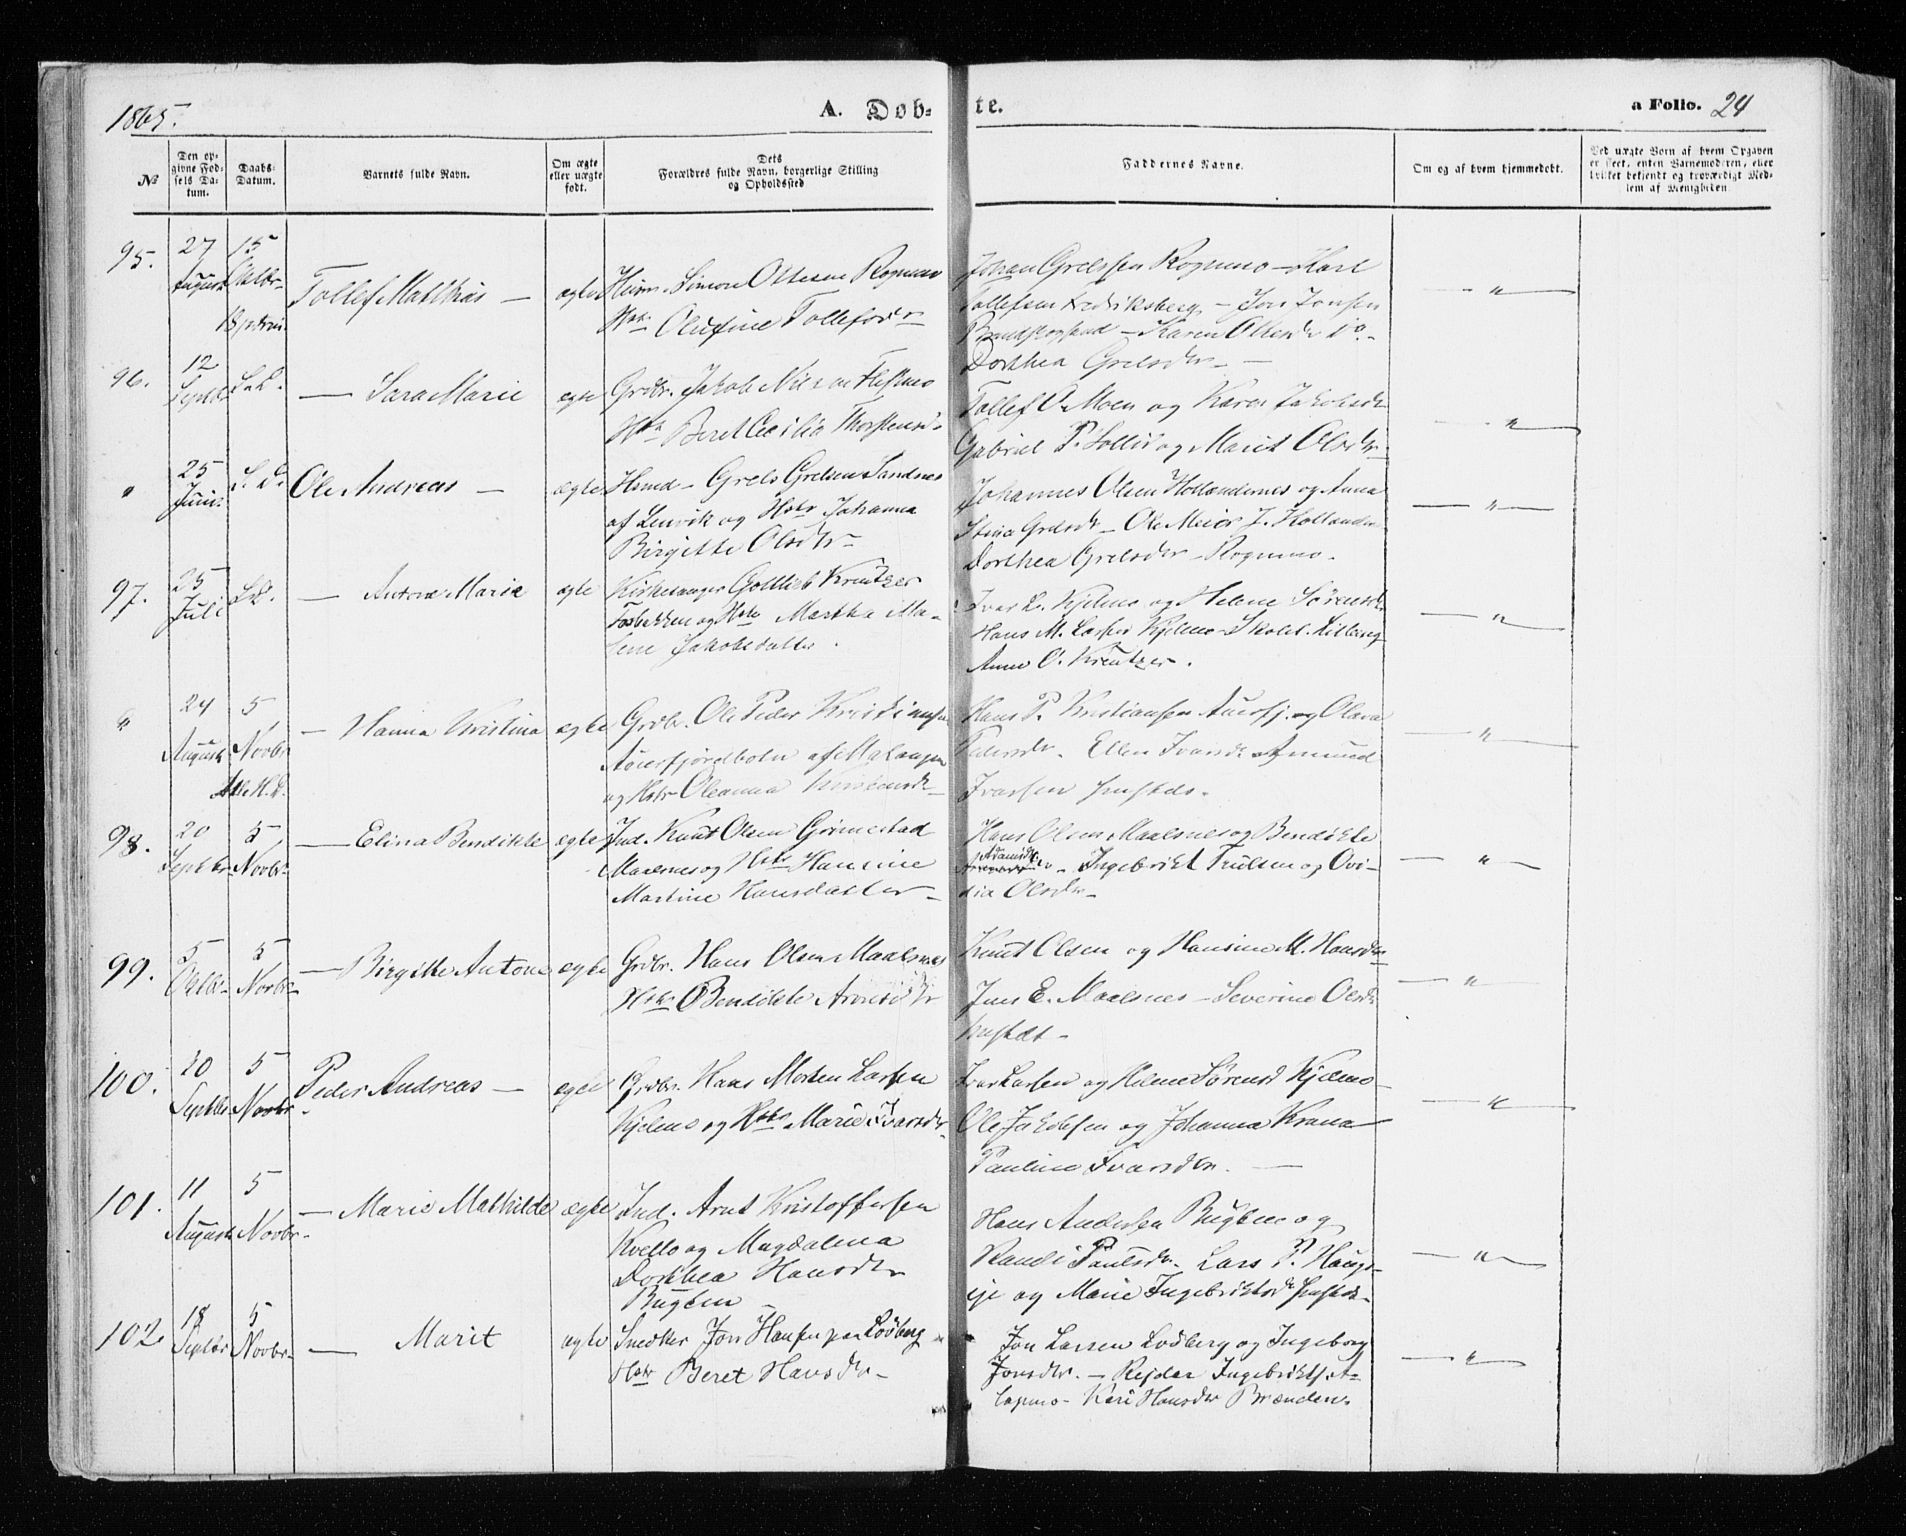 1865.
A. Døb-
te.
a Folio. 24
No
Den op-
givne Fød-
sels Da-
tum.
Daabs-
Datum.
Barnets fulde Navn.
Om ægte
eller uægte
født.
Dets
Forældres fulde Navn, borgerlige Stilling
og Opholdssted
Faddernes Navne.
Om og af hvem hjemmedøbt.
Ved uægte Børn af hvem Opgaven
er skeet, enten Barnemoderen, eller
hvilket bekjendt og troværdigt Med-
lem af Menigheden.
95. 27 August 15 Octbr. Tollef Mathias — ægte Simon Ottesen Rognmo
Hstr. Olufine Tollefsdr
Johan Grelssen Rognmo — Karl
Tollefsen Fredriksberg — Jon Jonsen
Karen Olsdr
Dorthea Grelsdr — "
96. 12 Septbr S. D. — Sara Marie ægte Grdbr. Jakob Nilsen
Hstr Beret Cecilia Thorstensd.
Tollef O. Moen og Karen Jakobsdr
Gabriel P. Sollid og Marit Olsdr — "
" 25 Juni S. D. Ole Andreas — ægte Hmd — Grels Grelsen Sandnes
af Lenvik og Hstr Johanna
Birgitte Olsdtr
Johannes Olsen Hollændernes og Anna
Stina Grelsdr — Ole Meier J. Hollænder
Dorthea Grelsdr — Rognmo. — "
97. 25 Juli S. D. — Antone Marie ægte Kirkesanger Gottlieb Kreutzer
Fosbakken og Hstr Martha Ma-
lene Jakobsdatter.
Ivar L. Kjelmo og Helene Sørensdr
Hans M. Larsen Kjelmo — Skolel.
Anne O. Kreutzer. — "
" 24 August 5 Novbr — Hanna Kristina ægte Grdbr. Ole Peder Kristiansen
Aursfjordbotn af Malangen
og Hstr Oleanna
Hans P. Kristiansen Aursfj. og Olava
Pedersdr. Ellen Ivarsdr Amund
Ivarsen — "
98. 20 Septbr 5 Novbr — Elina Bendikte ægte Ind. Knut Olsen Grimestad
Maalsnes og Hstr Hansine
Martine Hansdatter —
Hans Olsen Maalsnes og Bendikte
Adamsdtr — Ingebrikt Trulsen og Ovi-
dia Olsdr — — "
99. 5 Octbr 5 Novbr — Birgitte Antone ægte Grdbr. Hans Olsen Maalsnes
Hstr Bendikte
Knut Olsen og Hansine M. Hansdr
Jens E. Maalsnes — Severine Olsdr
— "
100. 20 Septbr 5 Novbr Peder Andreas — ægte Grdbr. Hans Morten Larsen
Kjelmo og Hstr Marie Ivarsdr
Ivar Larsen og Helene Sørensd Kjelmo
Ole Jakobsen og Johanna
Pauline Ivarsdr. — "
101. 11 August 5 Novbr — Marie Mathilde ægte Ind. Arnt Kristoffersen
Kvello og Magdalena
Dorthea Hansdr
Hans Andersen og
Randi Paulsdr. Lars P. Haug-
eje og Marie Ingebriktsdr — "
102 18 Septbr 5 Novbr — Marit ægte Snedker Jon Hansen paa Lødberg
Hstr Beret Hansdr —
Jon Larsen Lødberg og Ingeborg
Jonsdtr. — Rejdar Ingebriktsen
Kari Hansdr Brænden. — "